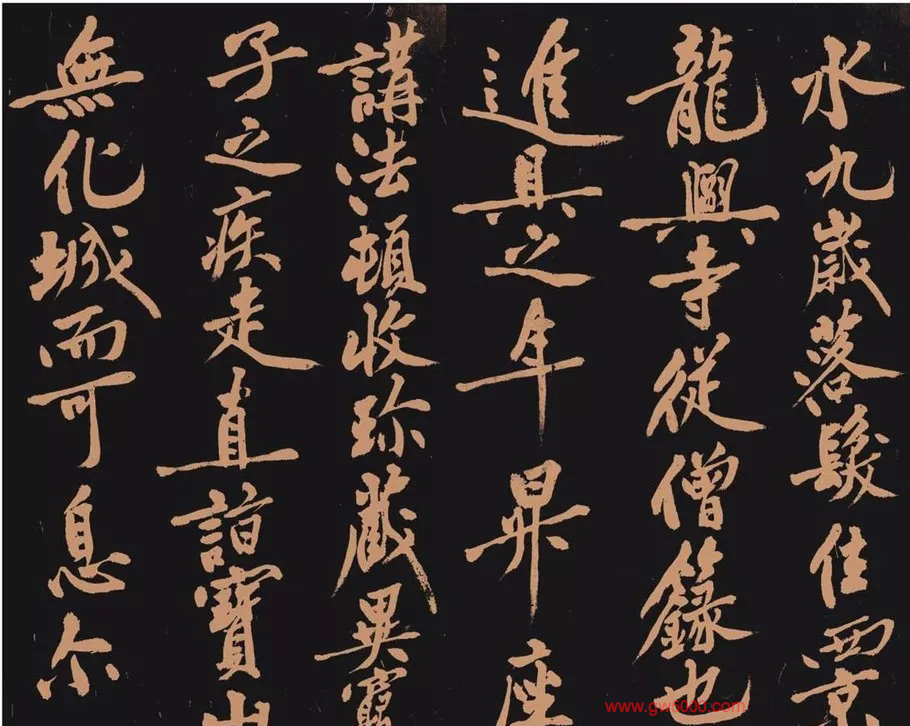 水九歲落髮住西京
龍興寺從僧籙也
進具之年昇座
講法頓收珎藏異寶
子之疾走直詣寶山
無化城而可息尔